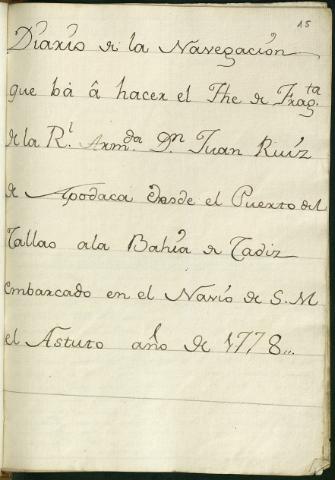 15
Diario de la Navegación
que bá â hacer el The de Fragta
de la Rl Armda Dn Juan Ruiz
de Apodaca desde el Puerto del
Callao ala Bahía de Cadiz
embarcado en el Navio de S. M
el Astuto año de 1778...